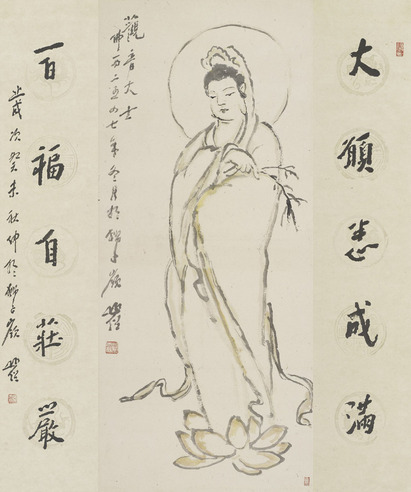 大願悉成滿
觀音大士
佛历二五四七年冬月於獅子嶺
百福自莊嚴
歲次癸未秋仲於獅子嶺